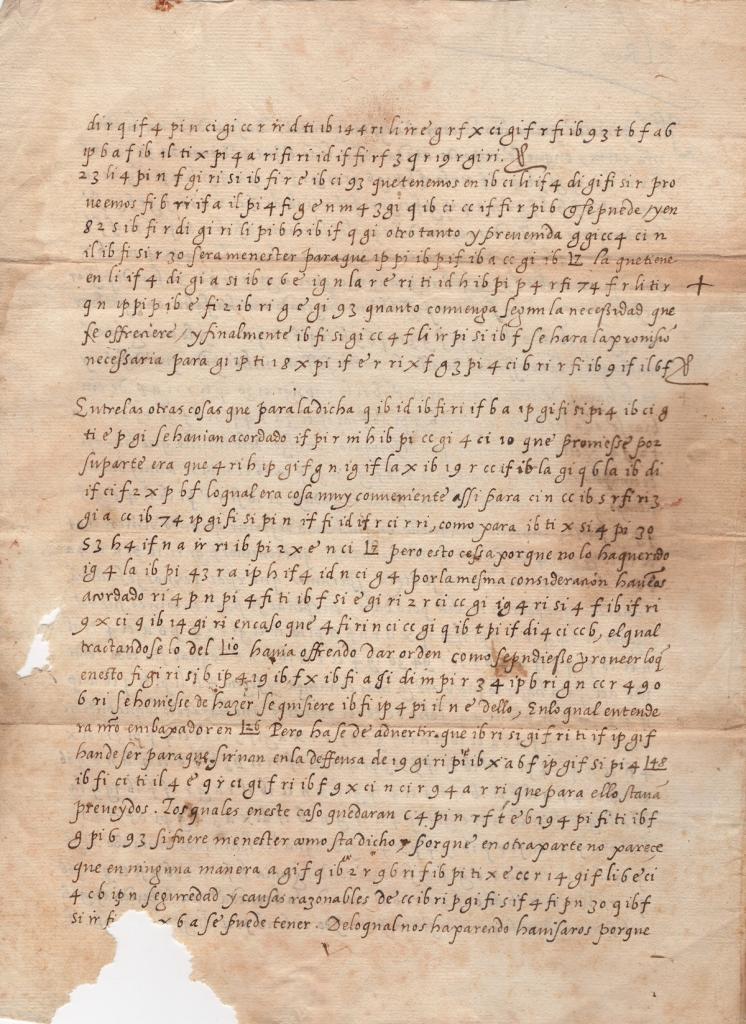 dir q if 4 pin ci gi cc r ir d ti ib 1 4 4 ri li ir e g r f x ci gi f r fi ib 9 3 t b f a b
ip b a f ib il ti x pi 4 a ri fi ri id if fi r f 3 q r 19 r gi ri.
2 3 li 4 pi n f gi ri si ib fi r e ib ci 9 3 que tenemos en ib ci li if 4 di gi fi si r pro
veemos fi b ri if a il pi 4 fi g e n m 4 3 gi q ib ci cc if fi r pi b se puede / y en
8 2 s ib fi r di gi ri li pi b h ib f q gi otro tanto y prevenida g gi cc 4 ci n
il ib fi si r 30 sera menester para que ip pi ib pi f ib a cc gi ib 17 la que tiene
en li if 4 di gi a si ib c 6 e ig n la r e ri ti id h ib pi p 4 r fi 7 4 f r li ti r
q n ip pi p ib e fi 2 ib ri g e gi 9 3 quanto convenga segun la neceßidad que
se offreciere / y finalmente ib fi si gi cc 4 f li ir pi si ib f se hara la provisiō
neceßaria para gi ip ti 1 8 x pi if e r ri x f g 3 pi 4 ci b ri r fi ib 9 if il b f
Entre las otras cosas que para la dicha q ib id ib fi ri if b a ip gi fi si pi 4 ib ci g
ti e p gi se havian acordado if pi r m h ib pi cc gi 4 ci 10 que promeße por
su parte era que 4 ri h ip gi f g n ig if la x ib 19 r cc if ib la gi q b la ib di
if ci f 2 x p b f lo qual era cosa muy conveniente assi para ci n cc ib s r fi ri 3
gi a cc ib 7 4 ip gi fi si pi n if fi id if r ci r ri, como para ib ti x si 4 pi 30
5 3 h 4 if n a ir ri ib pi 2 x e n ci 17 pero esto cessa porque no lo ha querido
ig 4 la ib pi 4 3 r a ip h if 4 id n ci g 4 por la mesma consideracion haviēs
acordado ri 4 p n pi 4 fi ti ib f si e gi ri 2 r ci cc gi ig 4 ri si 4 f ib if ri
9 x ci q ib 1 4 gi ri en caso que 4 fi ri n ci cc gi q ib t pi if di 4 ci cc b, el qual
tractandose lo del havia offrecido dar orden como se pudieße proveer loq̄
en esto fi gi ri si b ip 4 19 ib f x ib fi a gi di m pi r 3 4 ip b ri g n cc r 4 9 0
6 ri se hovieße de hazer se quisiere ib fi ip 4 pi il n e dello, En lo qual entende
ra nr̄o embaxador en Pero ha se de advertir que ib ri si gi f ri ti if ip gi f
han de ser para que sirvan en la deffensa de 19 gi ri pi ib x a b f ip gi f si pi 4 148
ib fi ci ti il 4 e q r ci gi f ri ib f 9 x ci n ci r 9 4 a r ri que para ello stava
preveydos. Los quales en este caso quedaran c 4 pi n r f t e b 19 4 pi fi ti ib f
g pi b 9 3 si fuere menester como sta dicho y porque en otra parte no parece
que en ninguna manera a gi f q ib 2 r 9 b ri fi b pi ti x e cc r 1 4 gi f li b e ci
4 c b ip n seguredad y causas razonables de cc ib ri p gi fi si f 4 fi p n 30 q ib f
si ir fi x b a se puede tener. Delo qual nos ha parecido havisaros porque